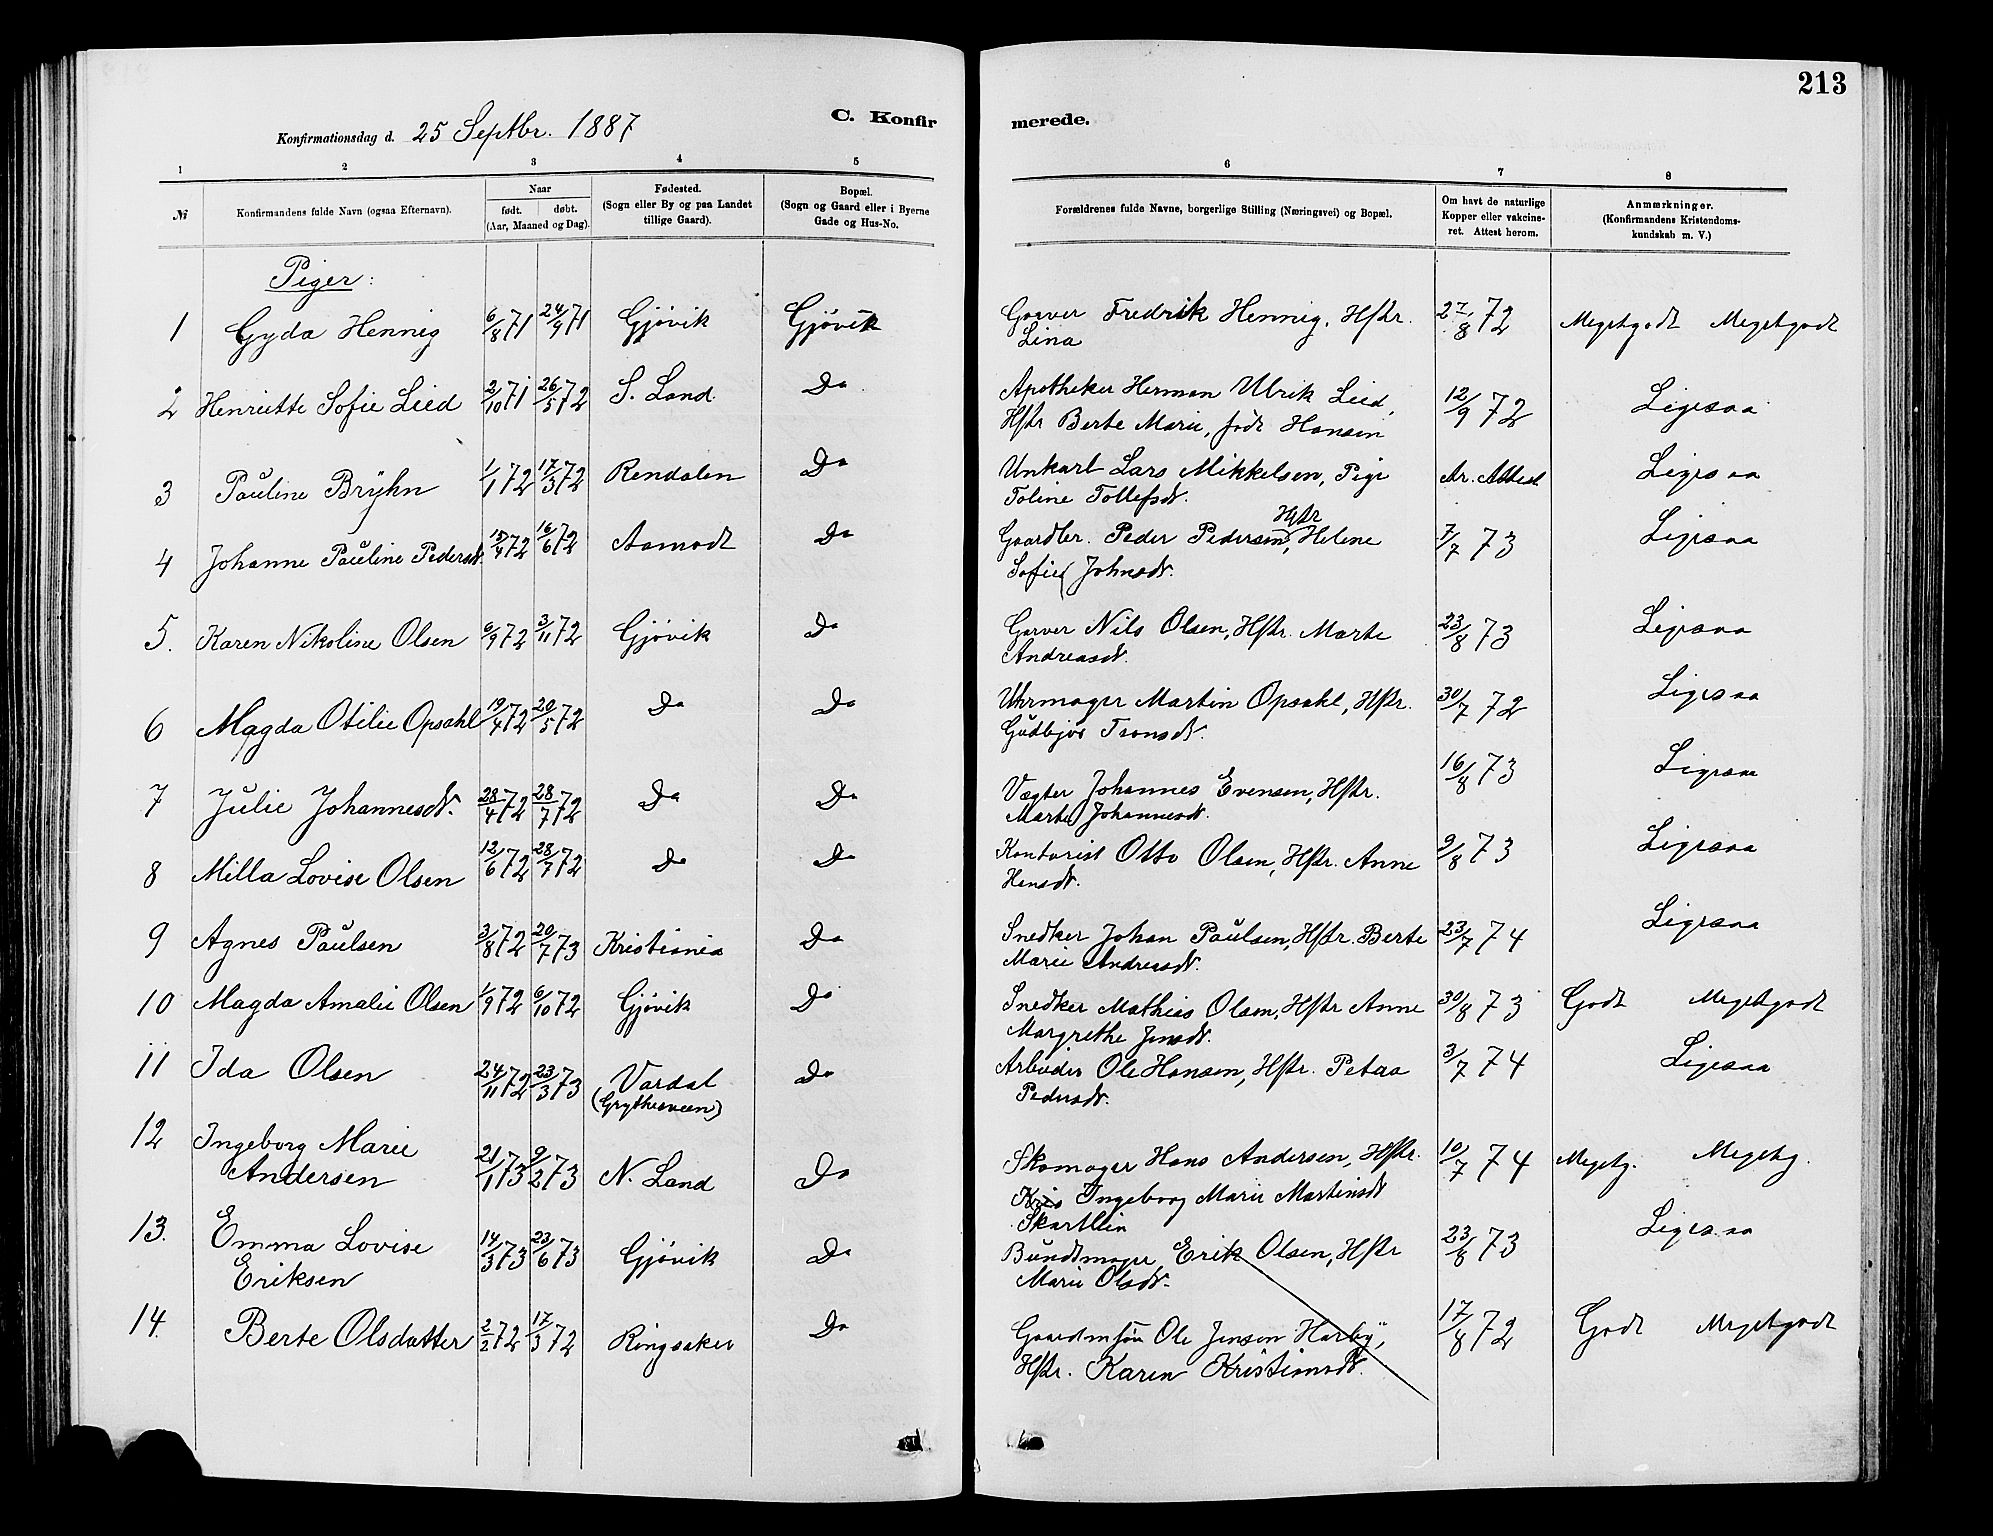 213
Konfirmationsdag d. 25 Septbr. 1887
C. Konfirmerede.
1 2 3 4 5 6 7 8
№ Konfirmandens fulde Navn (ogsaa Efternavn).
Naar
født. døbt.
(Aar, Maaned og Dag).
Fødested.
(Sogn eller By og paa Landet
tillige Gaard).
Bopæl.
(Sogn og Gaard eller i Byerne
Gade og Hus-No.
Forældrenes fulde Navne, borgerlige Stilling (Næringsvei) og Bopæl.
Om havt de naturlige
Kopper eller vakcine-
ret. Attest herom.
Anmærkninger.
(Konfirmandens Kristendoms-
kundskab m. V.)
Piger:
1 Gyda Hennig 6/8 71 24/9 71 Gjøvik Gjøvik Garver Fredrik Hennig, Hstr. 27/8 72 Megetgodt Megetgodt
Lina
2 Henriette Sofie Lied 2/10 71 26/5 72 S. Land Do Apotheker Herman Ulrik Lied, 12/9 72 Ligesaa
Hstr Berte Marie, født Hansen
3 Pauline Brÿhn 1/1 72 17/3 72 Rendalen Do Unkarl Lars Mikkelsen, Pige Ar. Attest Ligesaa
Toline Tollefsdt.
4 Johanne Pauline Pedersdt. 15/4 72 16/6 72 Aamodt Do Gaardbr. Peder Pedersen, Hstr Helene 7/7 73 Ligesaa
Sofie Johnsdt.
5. Karen Nikoline Olsen 6/9 72 3/11 72 Gjøvik Do Garver Nils Olsen, Hstr. Marte 23/8 73 Ligesaa
Andreasdt.
6 Magda Otilie Opsahl 19/4 72 20/5 72 Do Do Uhrmager Martin Opsahl, Hstr. 30/7 72 Ligesaa
Gudbjør Tronsdt.
7 Julie Johannesdt. 28/4 72 28/7 72 Do Do Vægter Johannes Evensen, Hstr. 16/8 73 Ligesaa
Marte Johannesdt.
8 Milla Lovise Olsen 12/6 72 28/7 72 Do Do Kontorist Otto Olsen, Hstr. Anne 9/8 73 Ligesaa
Hansdt.
9 Agnes Paulsen 3/8 72 20/7 73 Kristiania Do Snedker Johan Paulsen, Hstr. Berte 23/7 74 Ligesaa
Marie Andreasdt.
10 Magda Amalie Olsen 1/9 72 6/10 72 Gjøvik Do Snedker Mathias Olsen, Hstr Anne 30/8 73 Godt Megetgodt
Margrethe Jensdt.
11 Ida Olsen 24/11 72 23/3 73 Vardal Do Arbeider Ole Hansen, Hstr. Petera 3/7 74 Ligesaa
(Grythesveen) Pedersdt.
12 Ingeborg Marie
Andersen 21/1 73 9/2 73 N. Land Do Skomager Hans Andersen, Hstr. 10/7 74 Megetg. Megetg.
Ingeborg Marie Martinsdt
Skartlien
13. Emma Lovise
Eriksen 14/3 73 23/6 73 Gjøvik Do Bundtmager Erik Olsen, Hstr 23/8 73 Ligesaa
Marie Olsdt.
14. Berte Olsdatter 2/2 72 17/3 72 Ringsaker Do Ole Jensen Harbÿ, 17/8 72 Godt Megetgodt
Hstr. Karen Kristiansdt.